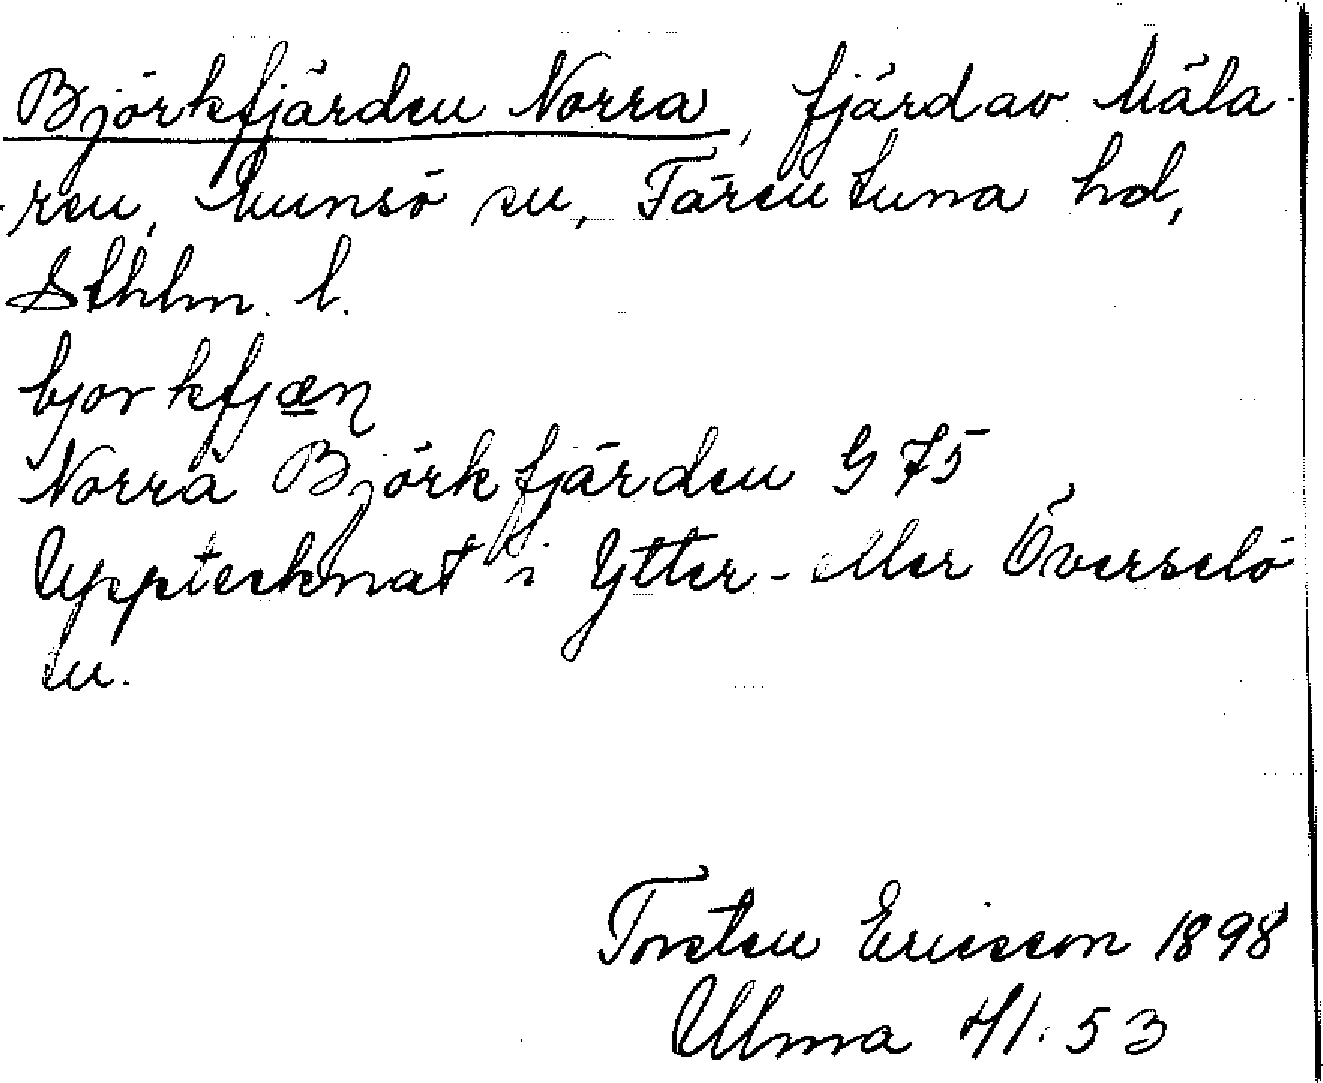 Björkfjärden Norra, fjärd av Mäla-
ren, Munsö sn, Färentuna hd,
Sthlm. l.
bjorkfjæn
Norra Björkfjärden G 75
Upptecknat i Ytter- eller Överselö
sn.
Torsten Ericsson 1898
Ulma 41.53